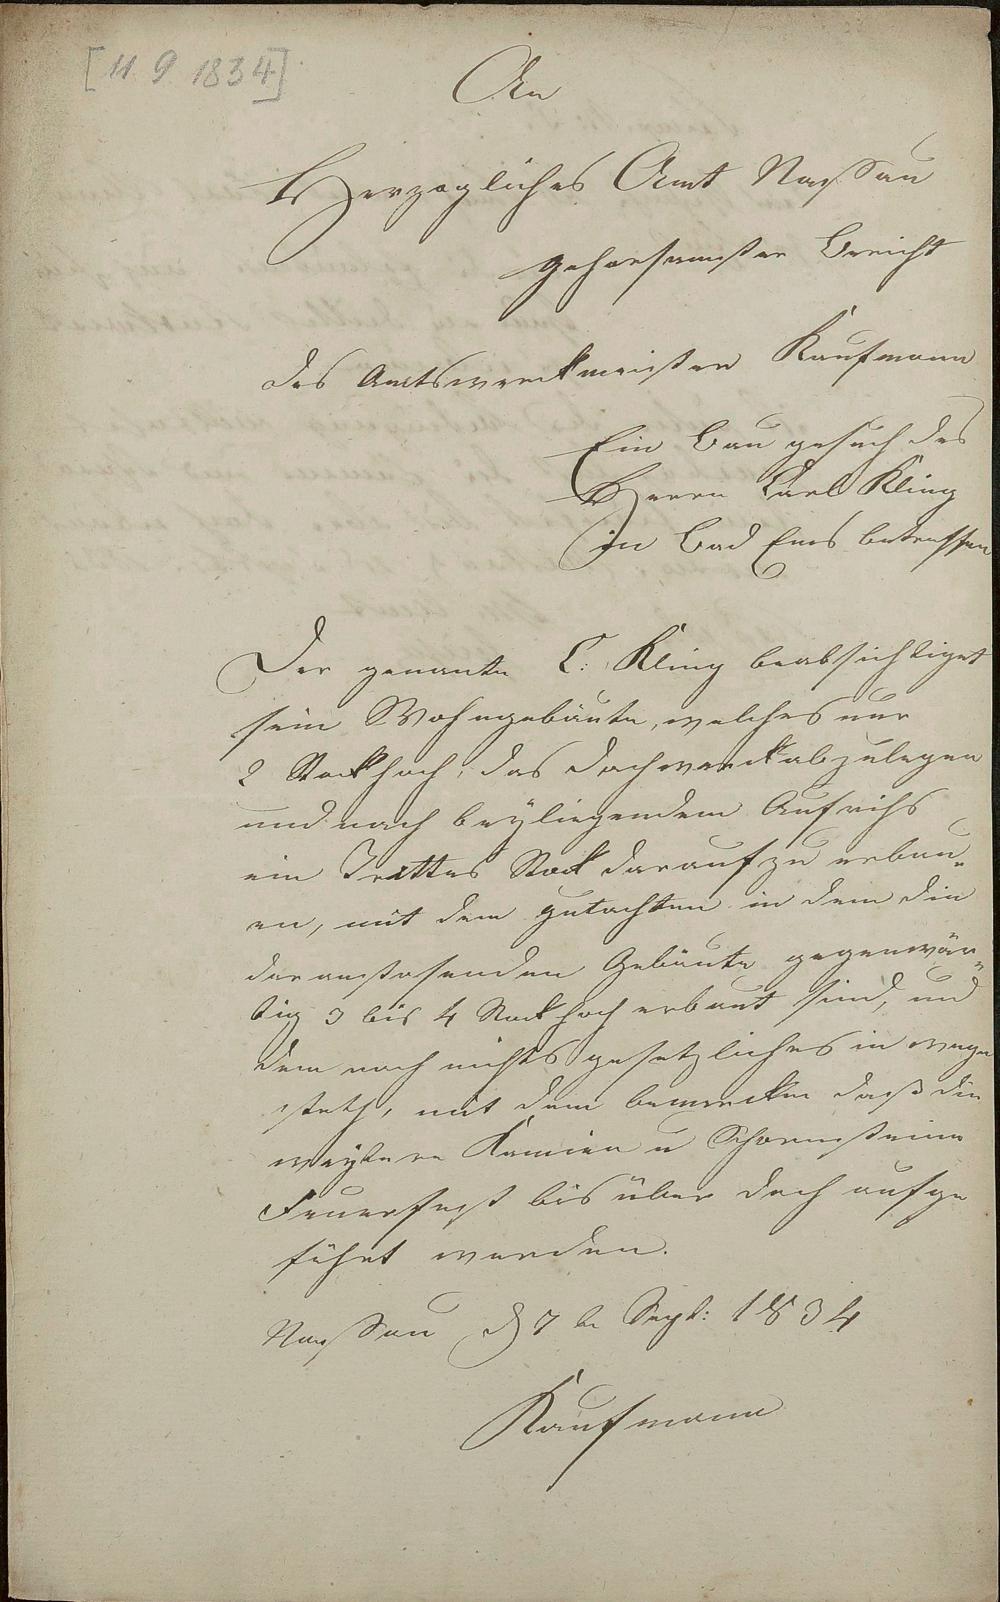 [11 9 1834]
An
Herzogliches Amt Nassau
gehorsamster Bericht
des Amtswerckmeisters Kaufmann
Ein Bau gesuch des
Herrn Carl Kling
in Bad Ems betreffen
Der genante C: Kling beabsichtiget
sein Wohngebäute, welches nur
2 Stockhoch, das dachwerck abzulegen
und nach beyliegendem Aufrihs
ein Drittes Stock darauf zu erbau-
en, mit dem gutachten in dem die
daranstosenden Gebäute gegenwär-
tig 3 bis 4 Stockhoch erbaut sind, und
dem noch nichts gesetzliches in wege
steth, mit dem bemercken daß die
weytere Kamien u Schornsteine
Feuerfest bis über dach aufge
führt werden.
Nassau d 7 te Sept: 1834
Kaufmann